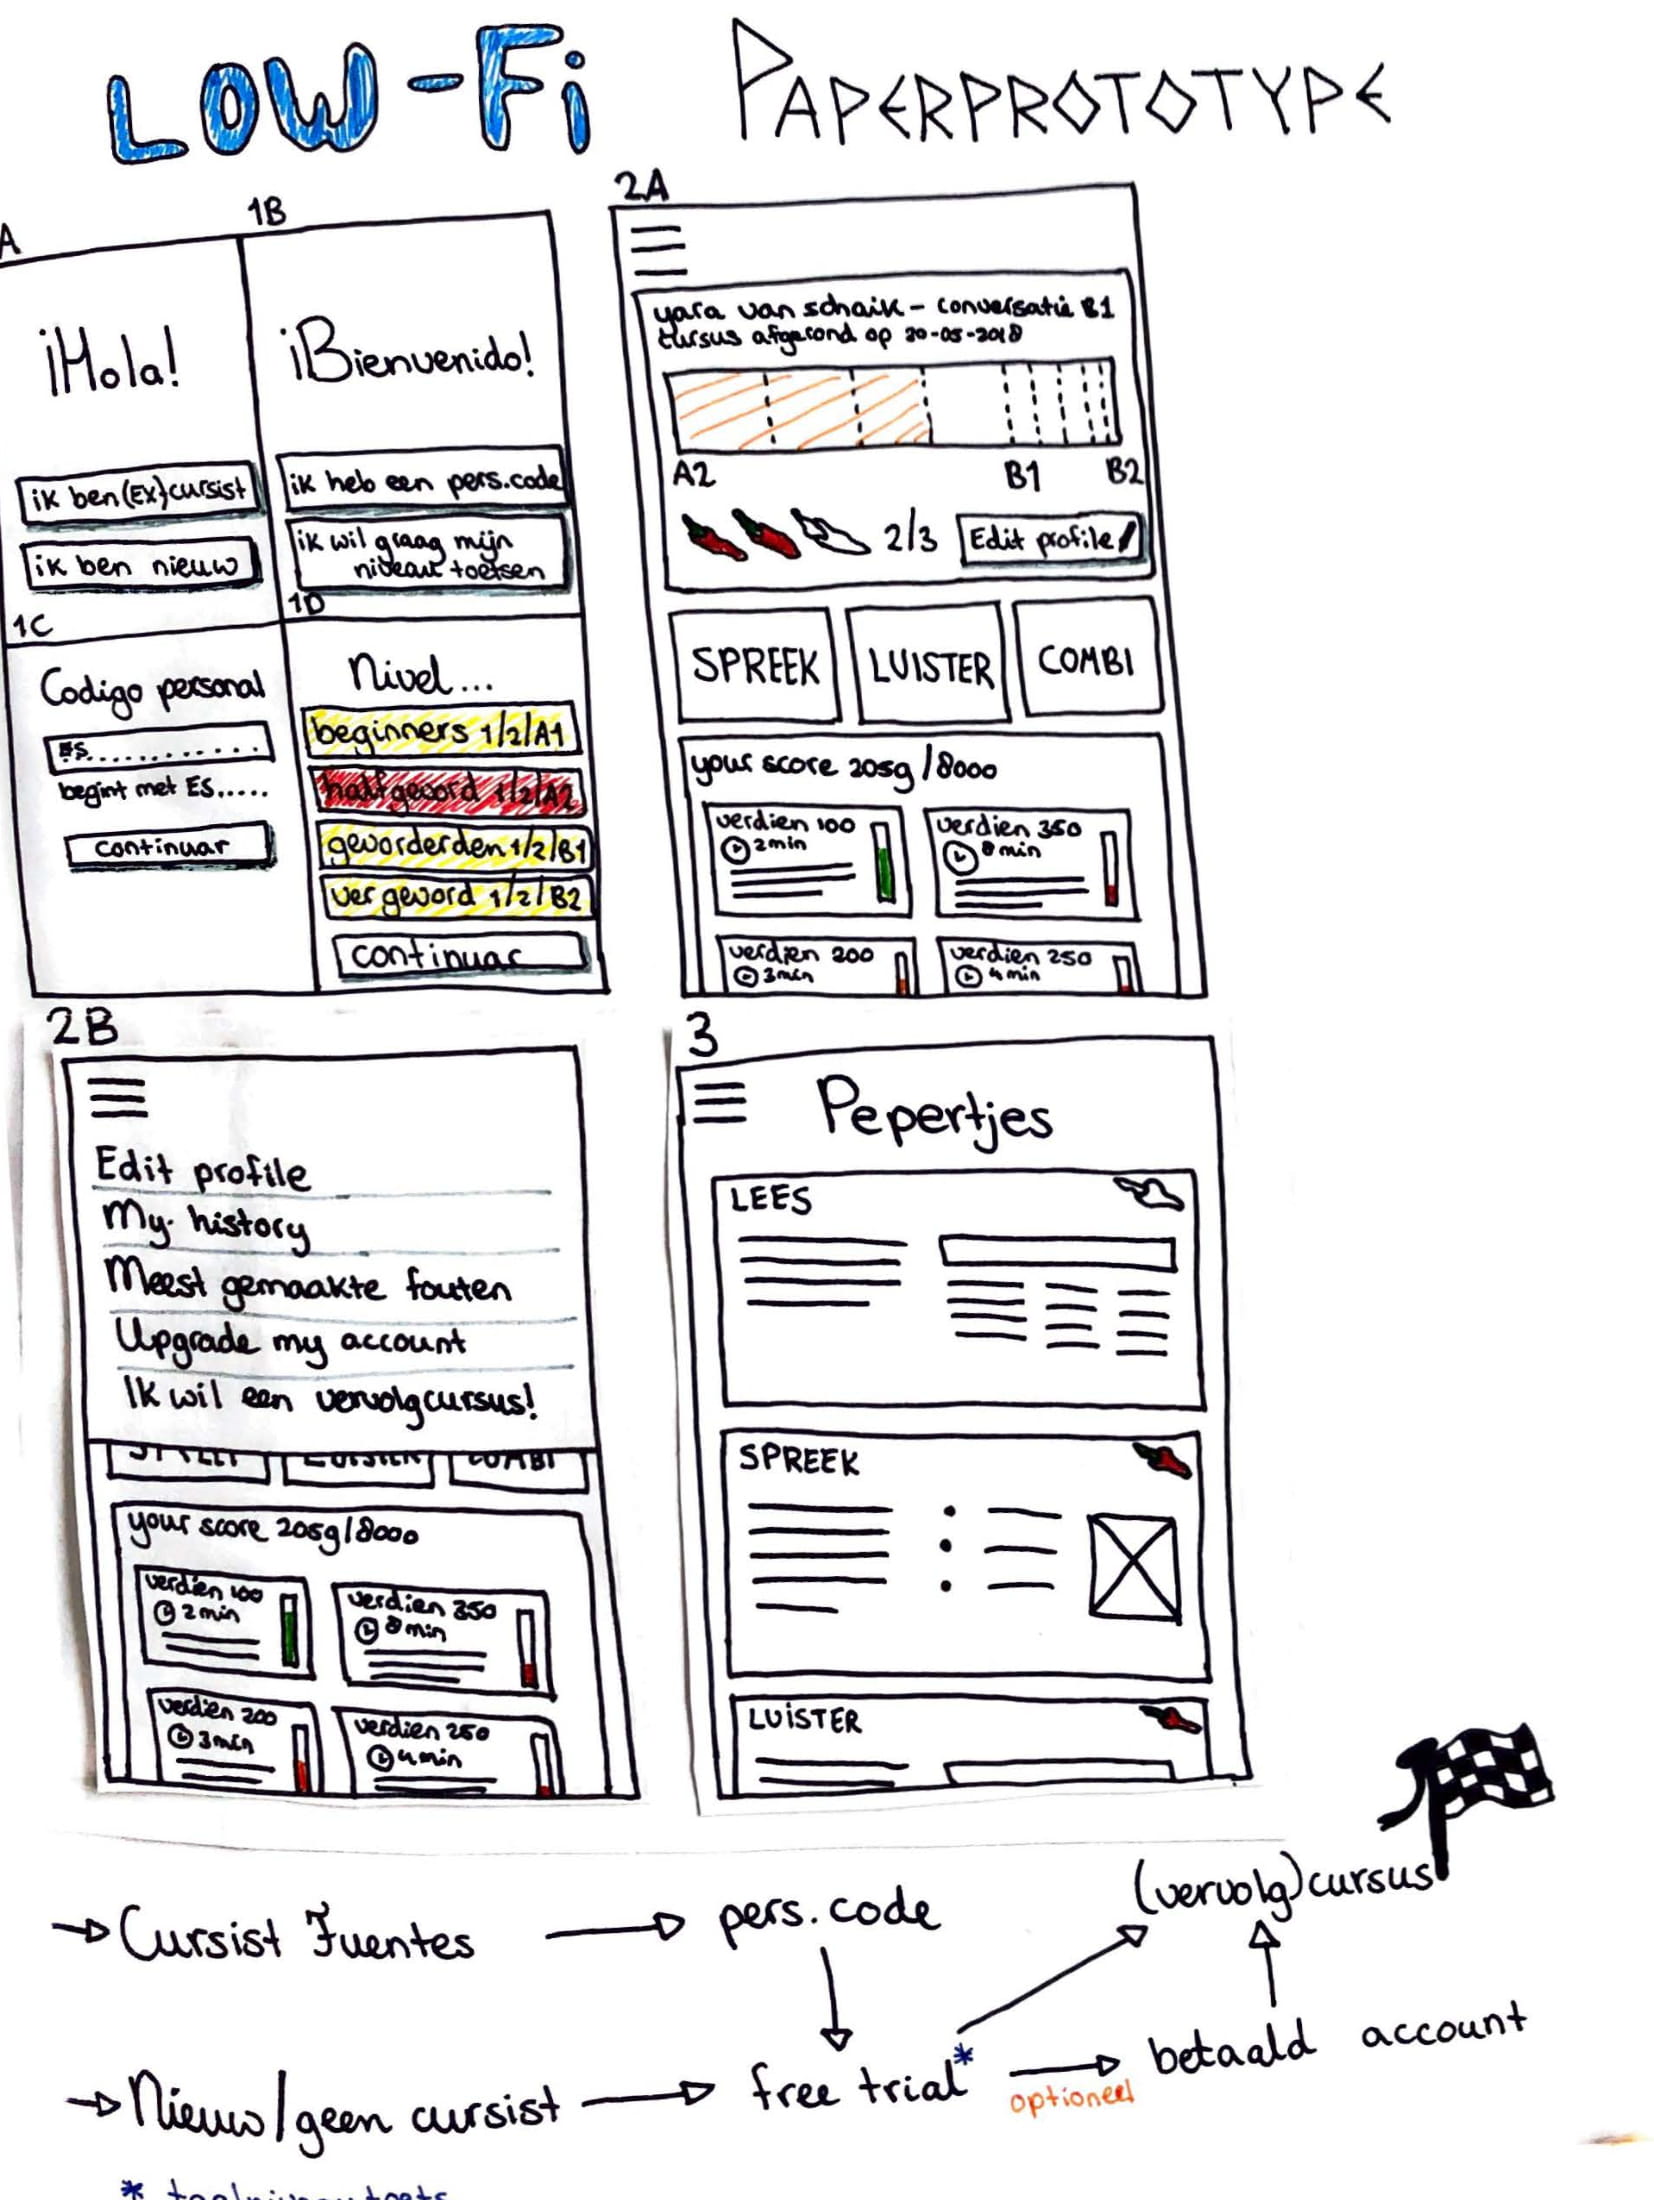 LOW-Fi PAPERPROTOTYPE
A
1B
¡Hola!
ik ben (Ex)cursist
ik ben nieuw
¡Bienvenido!
ik heb een pers.code
ik wil graag mijn
niveau toetsen
1C
Codigo personal
ES............
begint met ES.....
continuar
1D
Nivel...
beginners 1/2/A1
halfgevord 1/2/A2
gevorderden 1/2/B1
ver gevord 1/2/B2
continuar
2A
yara van schaik - conversatie B1
cursus afgerond op 20-05-2018
A2 B1 B2
2/3 Edit profile
SPREEK LUISTER COMBI
your score 2059/8000
verdien 100
2min
verdien 350
8 min
verdien 200
3min
verdien 250
4 min
2B
Edit profile
My history
Meest gemaakte fouten
Upgrade my account
Ik wil een vervolgcursus!
SPREEK LUISTER COMBI
your score 2059/8000
verdien 100
2 min
verdien 350
8 min
verdien 200
3min
verdien 250
4 min
3
Pepertjes
LEES
SPREEK
LUiSTER
Cursist Fuentes pers. code (vervolg)cursus
Nieuw/geen cursist free trial* optioneel betaald account
* taalniveau toets